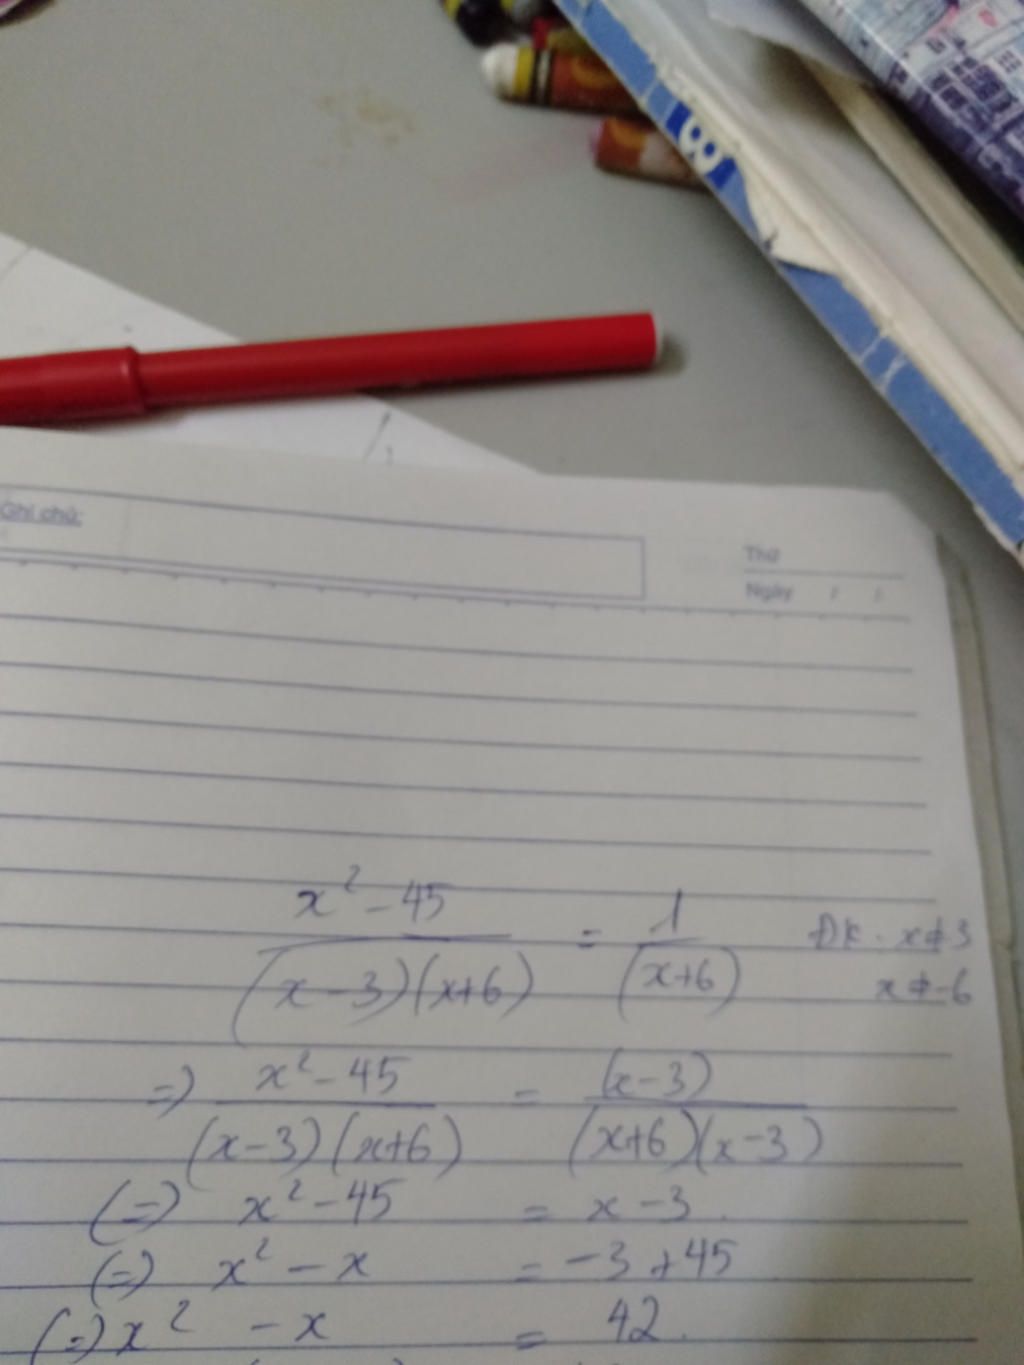 8
Ghi chú:
Thứ
Ngày / /
x² - 45 / (x - 3)(x+6) = 1 / (x+6) ĐK: x ≠ 3
x ≠ -6
=) x² - 45 / (x - 3)(x+6) = (x - 3) / (x+6)(x - 3)
(=) x² - 45 = x - 3.
(=) x² - x = -3 + 45
(=) x² - x = 42.